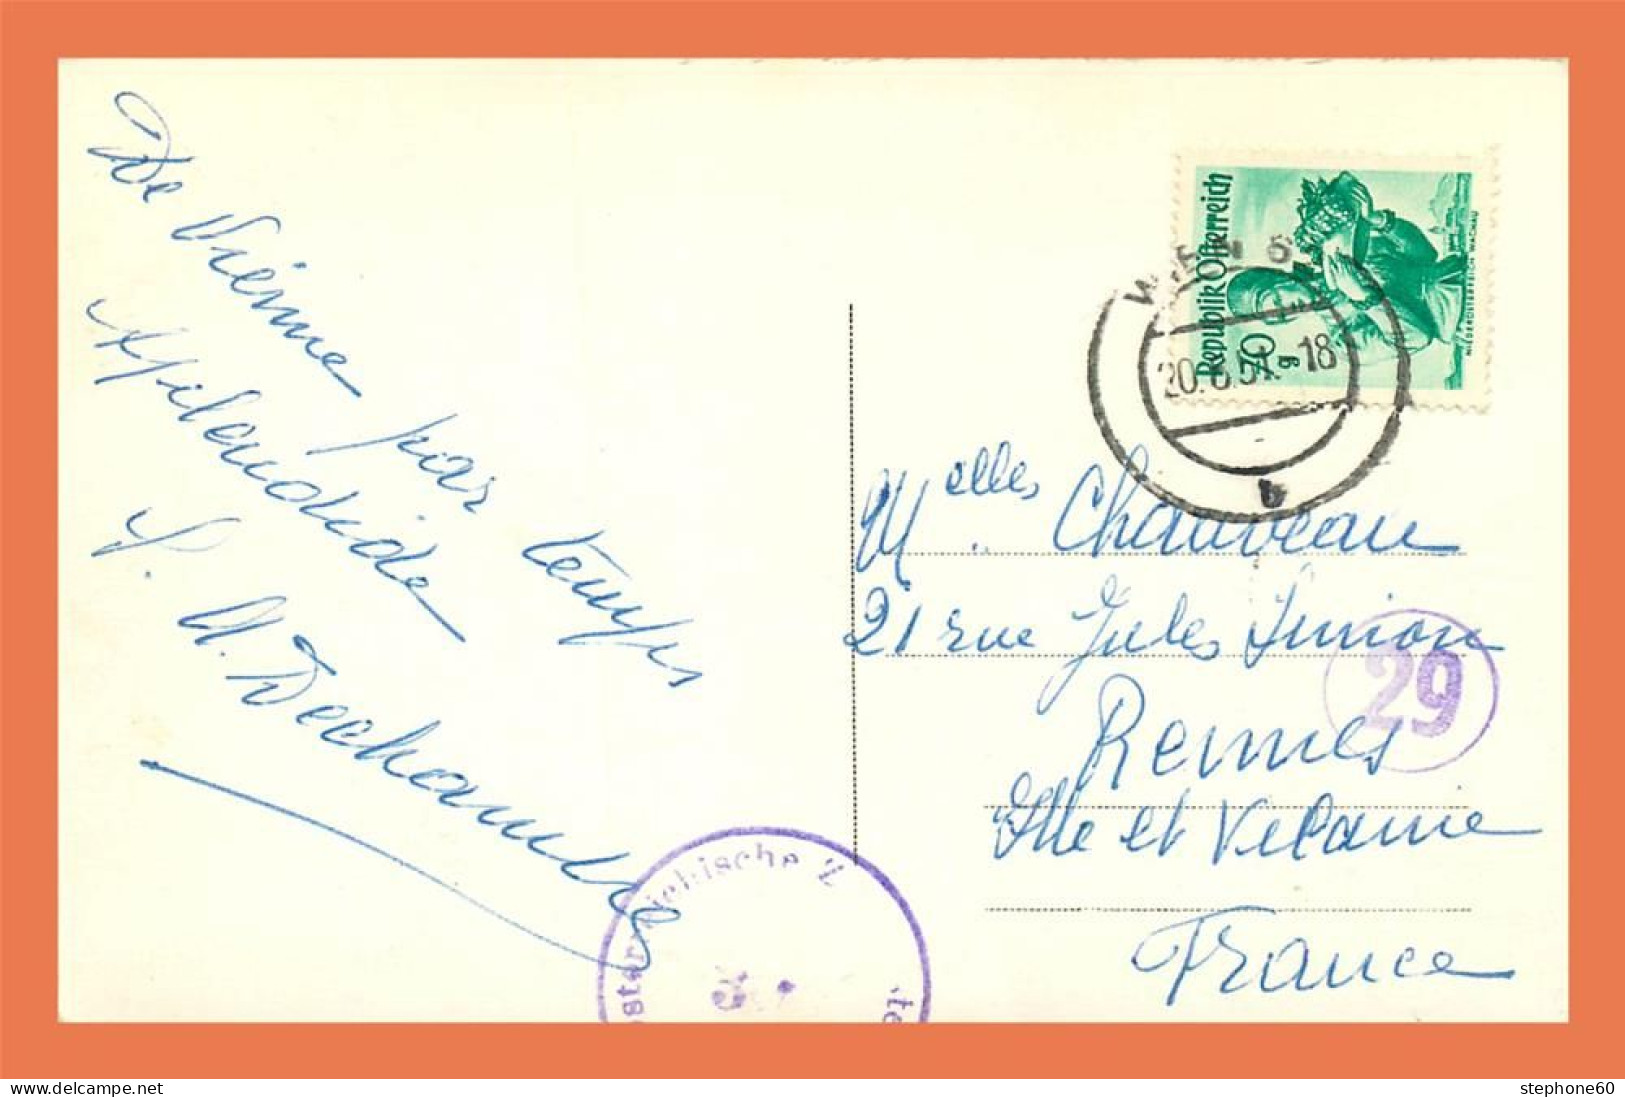 De Vienne par temps
splendide
S. M. Dechamebo
Republik Österreich
70 g
NIEDERÖSTERREICH WACHAU
WIEN
20. 8. 51. 18
b
Melles Chauveau
21 rue Jules Simon
Rennes
Ille et Vilaine
France
29
Österreichische Z
Ma-Shops
stephone60